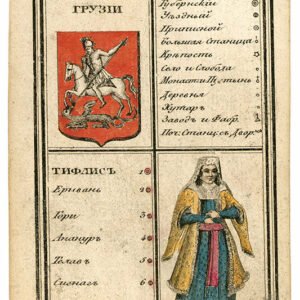 ГРУЗІИ
Губернский
Уѣздный
Приписной
большая Станица
Крѣпость
Село и Слобода
Монаст: и Пустынь
Деревня
Хутаръ
Заводъ и Фабр:
Поч: Станц: съ Двор:
ТИФЛИСЪ 1
Еривань 2
Гори 3
Ананур 4
Телавъ 5
Сигнаг 6